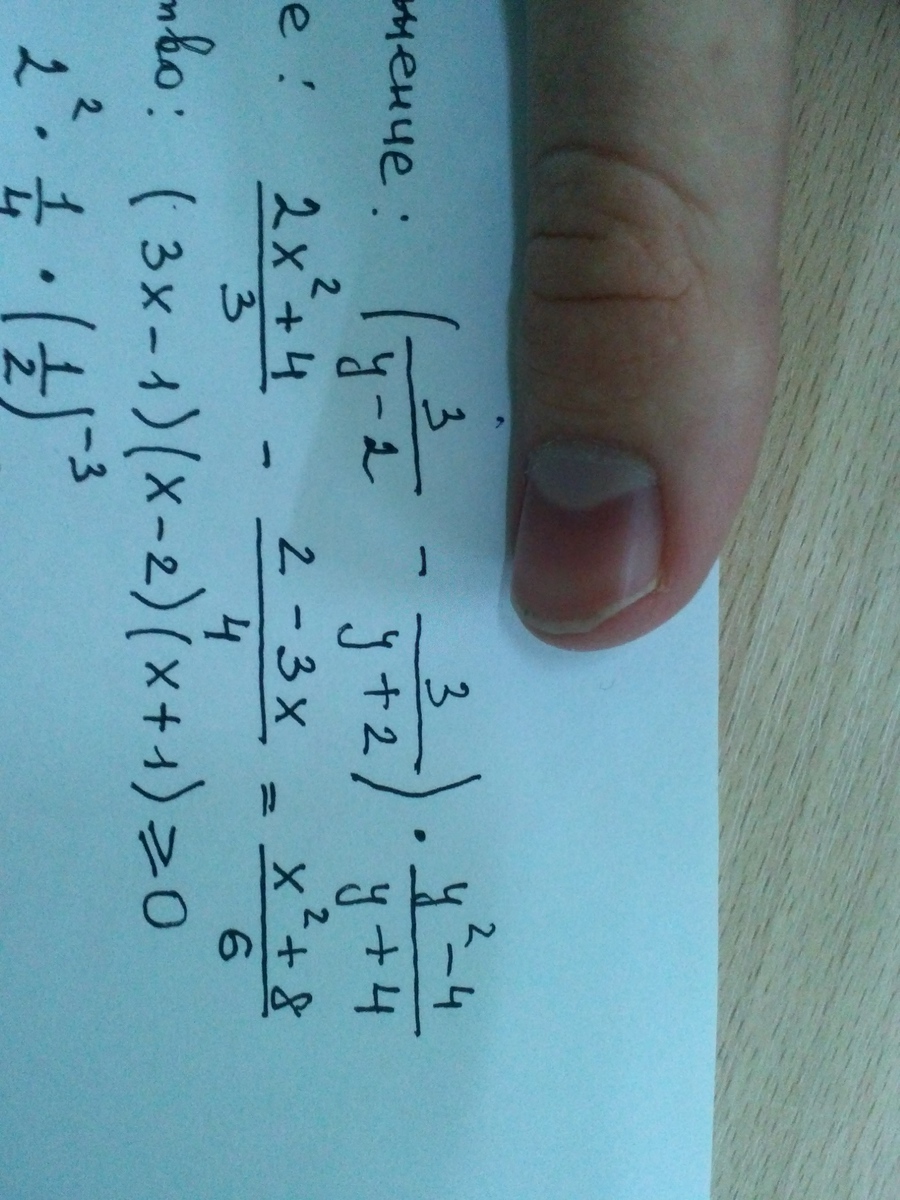 ( 3/(y-2) - 3/(y+2) ) · (y²-4)/(y+4)
е: (2x²+4)/3 - (2-3x)/4 = (x²+8)/6
тво: (3x-1)(x-2)(x+1) ≥ 0
2² · 1/4 · (1/2)⁻³